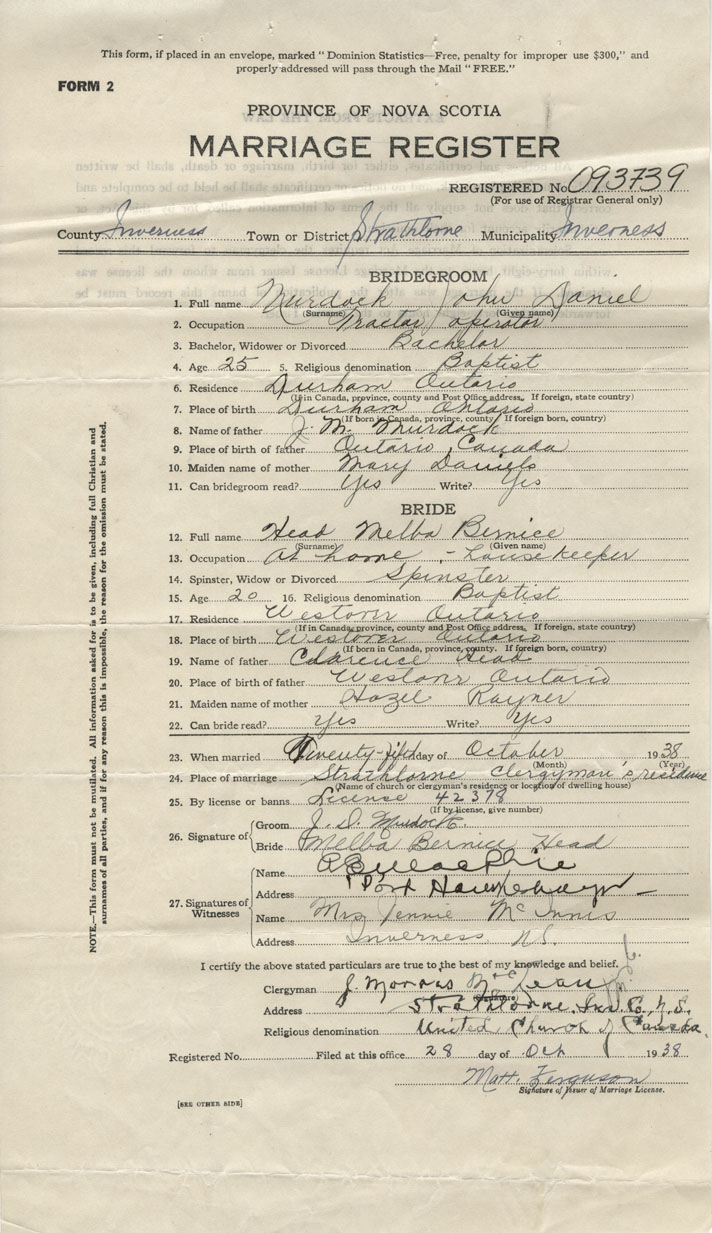 This form, if placed in an envelope, marked "Dominion Statistics—Free, penalty for improper use $300," and
properly addressed will pass through the Mail "FREE."
FORM 2
PROVINCE OF NOVA SCOTIA
MARRIAGE REGISTER
REGISTERED No. 093739
(For use of Registrar General only)
County Inverness Town or District Strathlorne Municipality Inverness
BRIDEGROOM
1. Full name Murdock John Daniel
(Surname) (Given name)
2. Occupation Tractor operator
3. Bachelor, Widower or Divorced Bachelor
4. Age 25 5. Religious denomination Baptist
6. Residence Durham Ontario
(If in Canada, province, county and Post Office address. If foreign, state country)
7. Place of birth Durham Ontario
(If born in Canada, province, county. If foreign born, country)
8. Name of father J. M. Murdock
9. Place of birth of father Ontario, Canada
10. Maiden name of mother Mary Daniels
11. Can bridegroom read? Yes Write? Yes
BRIDE
12. Full name Head Melba Bernice
(Surname) (Given name)
13. Occupation At home - Housekeeper
14. Spinster, Widow or Divorced Spinster
15. Age 20 16. Religious denomination Baptist
17. Residence Westover Ontario
(If in Canada, province, county and Post Office address. If foreign, state country)
18. Place of birth Westover Ontario
(If born in Canada, province, county. If foreign born, country)
19. Name of father Clarence Head
20. Place of birth of father Westover Ontario
21. Maiden name of mother Hazel Rayner
22. Can bride read? Yes Write? Yes
23. When married Twenty-fifth day of October 1938
(Month) (Year)
24. Place of marriage Strathlorne Clergyman's residence
(Name of church or clergyman's residence or location of dwelling house)
25. By license or banns License 42378
(If by license, give number)
26. Signature of
Groom J. D. Murdock
Bride Melba Bernice Head
27. Signatures of Witnesses
Name
Address Port Hawkesbury
Name Mrs Jennie McInnis
Address Inverness, N.S.
I certify the above stated particulars are true to the best of my knowledge and belief.
Clergyman J. Morris McLean
Address Strathlorne, Inv. Co., N.S.
Religious denomination United Church of Canada.
Registered No. Filed at this office 28 day of Oct 1938
Matt Ferguson
Signature of Issuer of Marriage License.
[SEE OTHER SIDE]
NOTE.—This form must not be mutilated. All information asked for is to be given, including full Christian and
surnames of all parties, and if for any reason this is impossible, the reason for the omission must be stated.